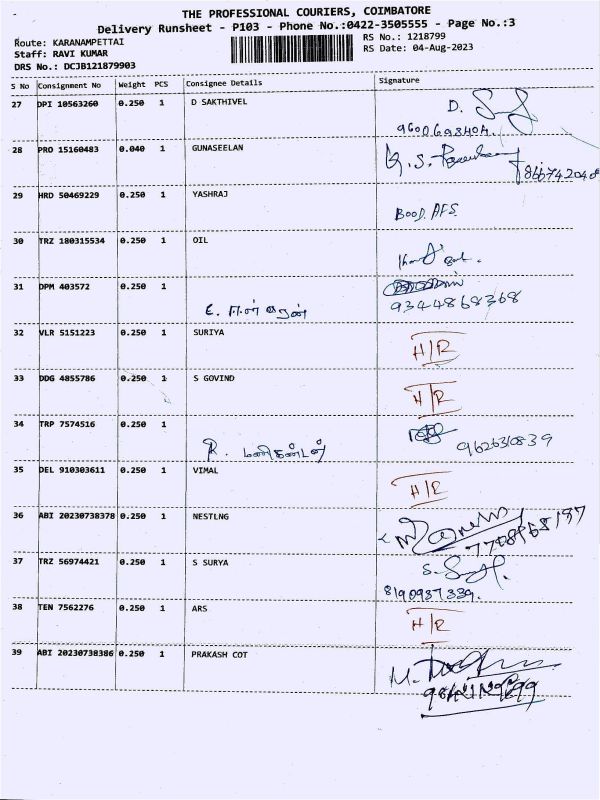 THE PROFESSIONAL COURIERS, COIMBATORE
Delivery Runsheet - P103 - Phone No.:0422-3505555 - Page No.:3
Route: KARANAMPETTAI RS No.: 1218799
Staff: RAVI KUMAR RS Date: 04-Aug-2023
DRS No.: DCJB121879903
S No Consignment No Weight PCS Consignee Details Signature
27 DPI 10563260 0.250 1 D SAKTHIVEL D.
9600693404.
28 PRO 15160483 0.040 1 GUNASEELAN
29 HRD 50469229 0.250 1 YASHRAJ
BOOD. AFS.
30 TRZ 180315534 0.250 1 OIL
31 DPM 403572 0.250 1
9344868368
32 VLR 5151223 0.250 1 SURIYA H/R
33 DDG 4855786 0.250 1 S GOVIND H/R
34 TRP 7574516 0.250 1
R. மணிகண்டன்
35 DEL 910303611 0.250 1 VIMAL H/R
36 ABI 20230738378 0.250 1 NESTLNG
37 TRZ 56974421 0.250 1 S SURYA
8190937339.
38 TEN 7562276 0.250 1 ARS H/R
39 ABI 20230738386 0.250 1 PRAKASH COT